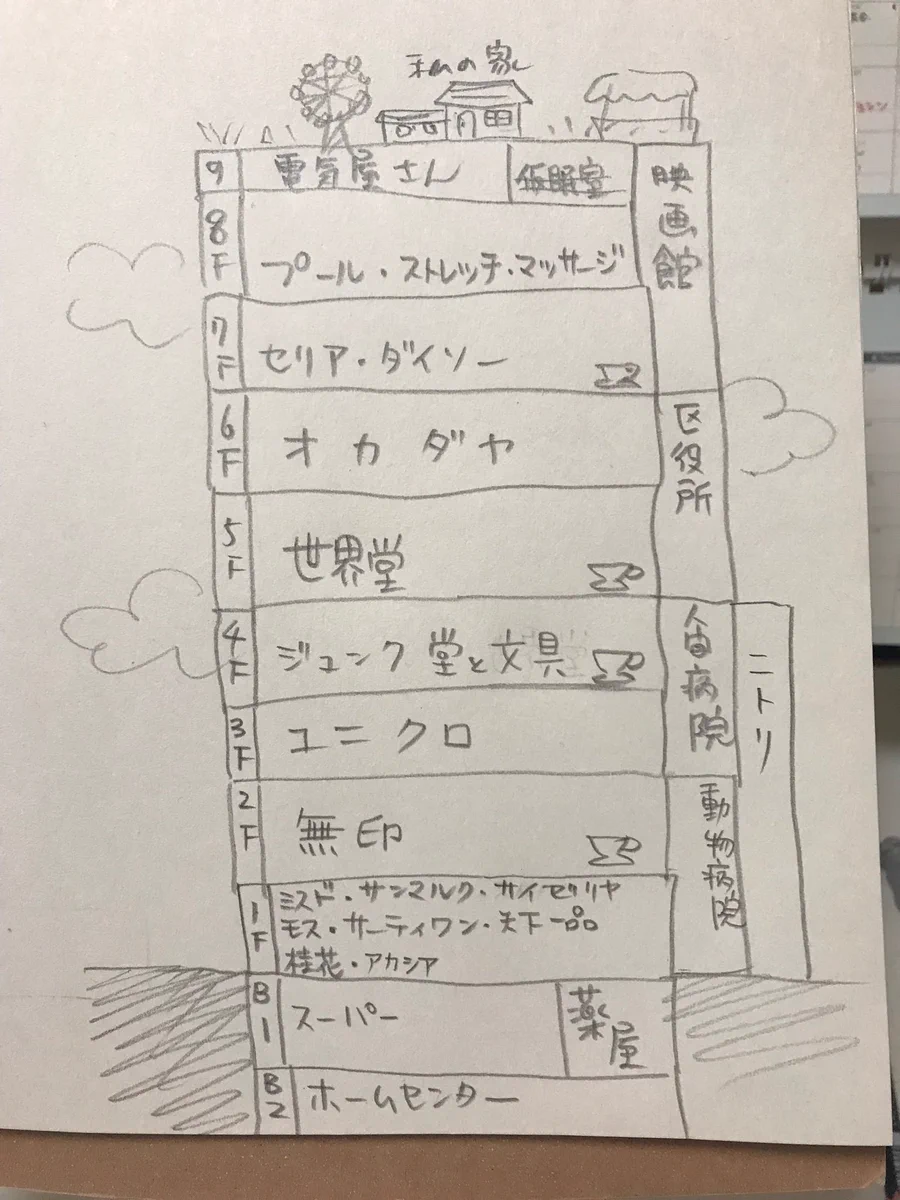 私の家
9
電気屋さん
仮眠室
映画館
8F
プール・ストレッチ・マッサージ
7F
セリア・ダイソー
6F
オカダヤ
区役所
5F
世界堂
4F
ジュンク堂と文具
歯病院
ニトリ
3F
ユニクロ
2F
無印
動物病院
1F
ミスド・サンマルク・サイゼリヤ
モス・サーティワン・天下一品
桂花・アカシア
B1
スーパー
薬屋
B2
ホームセンター